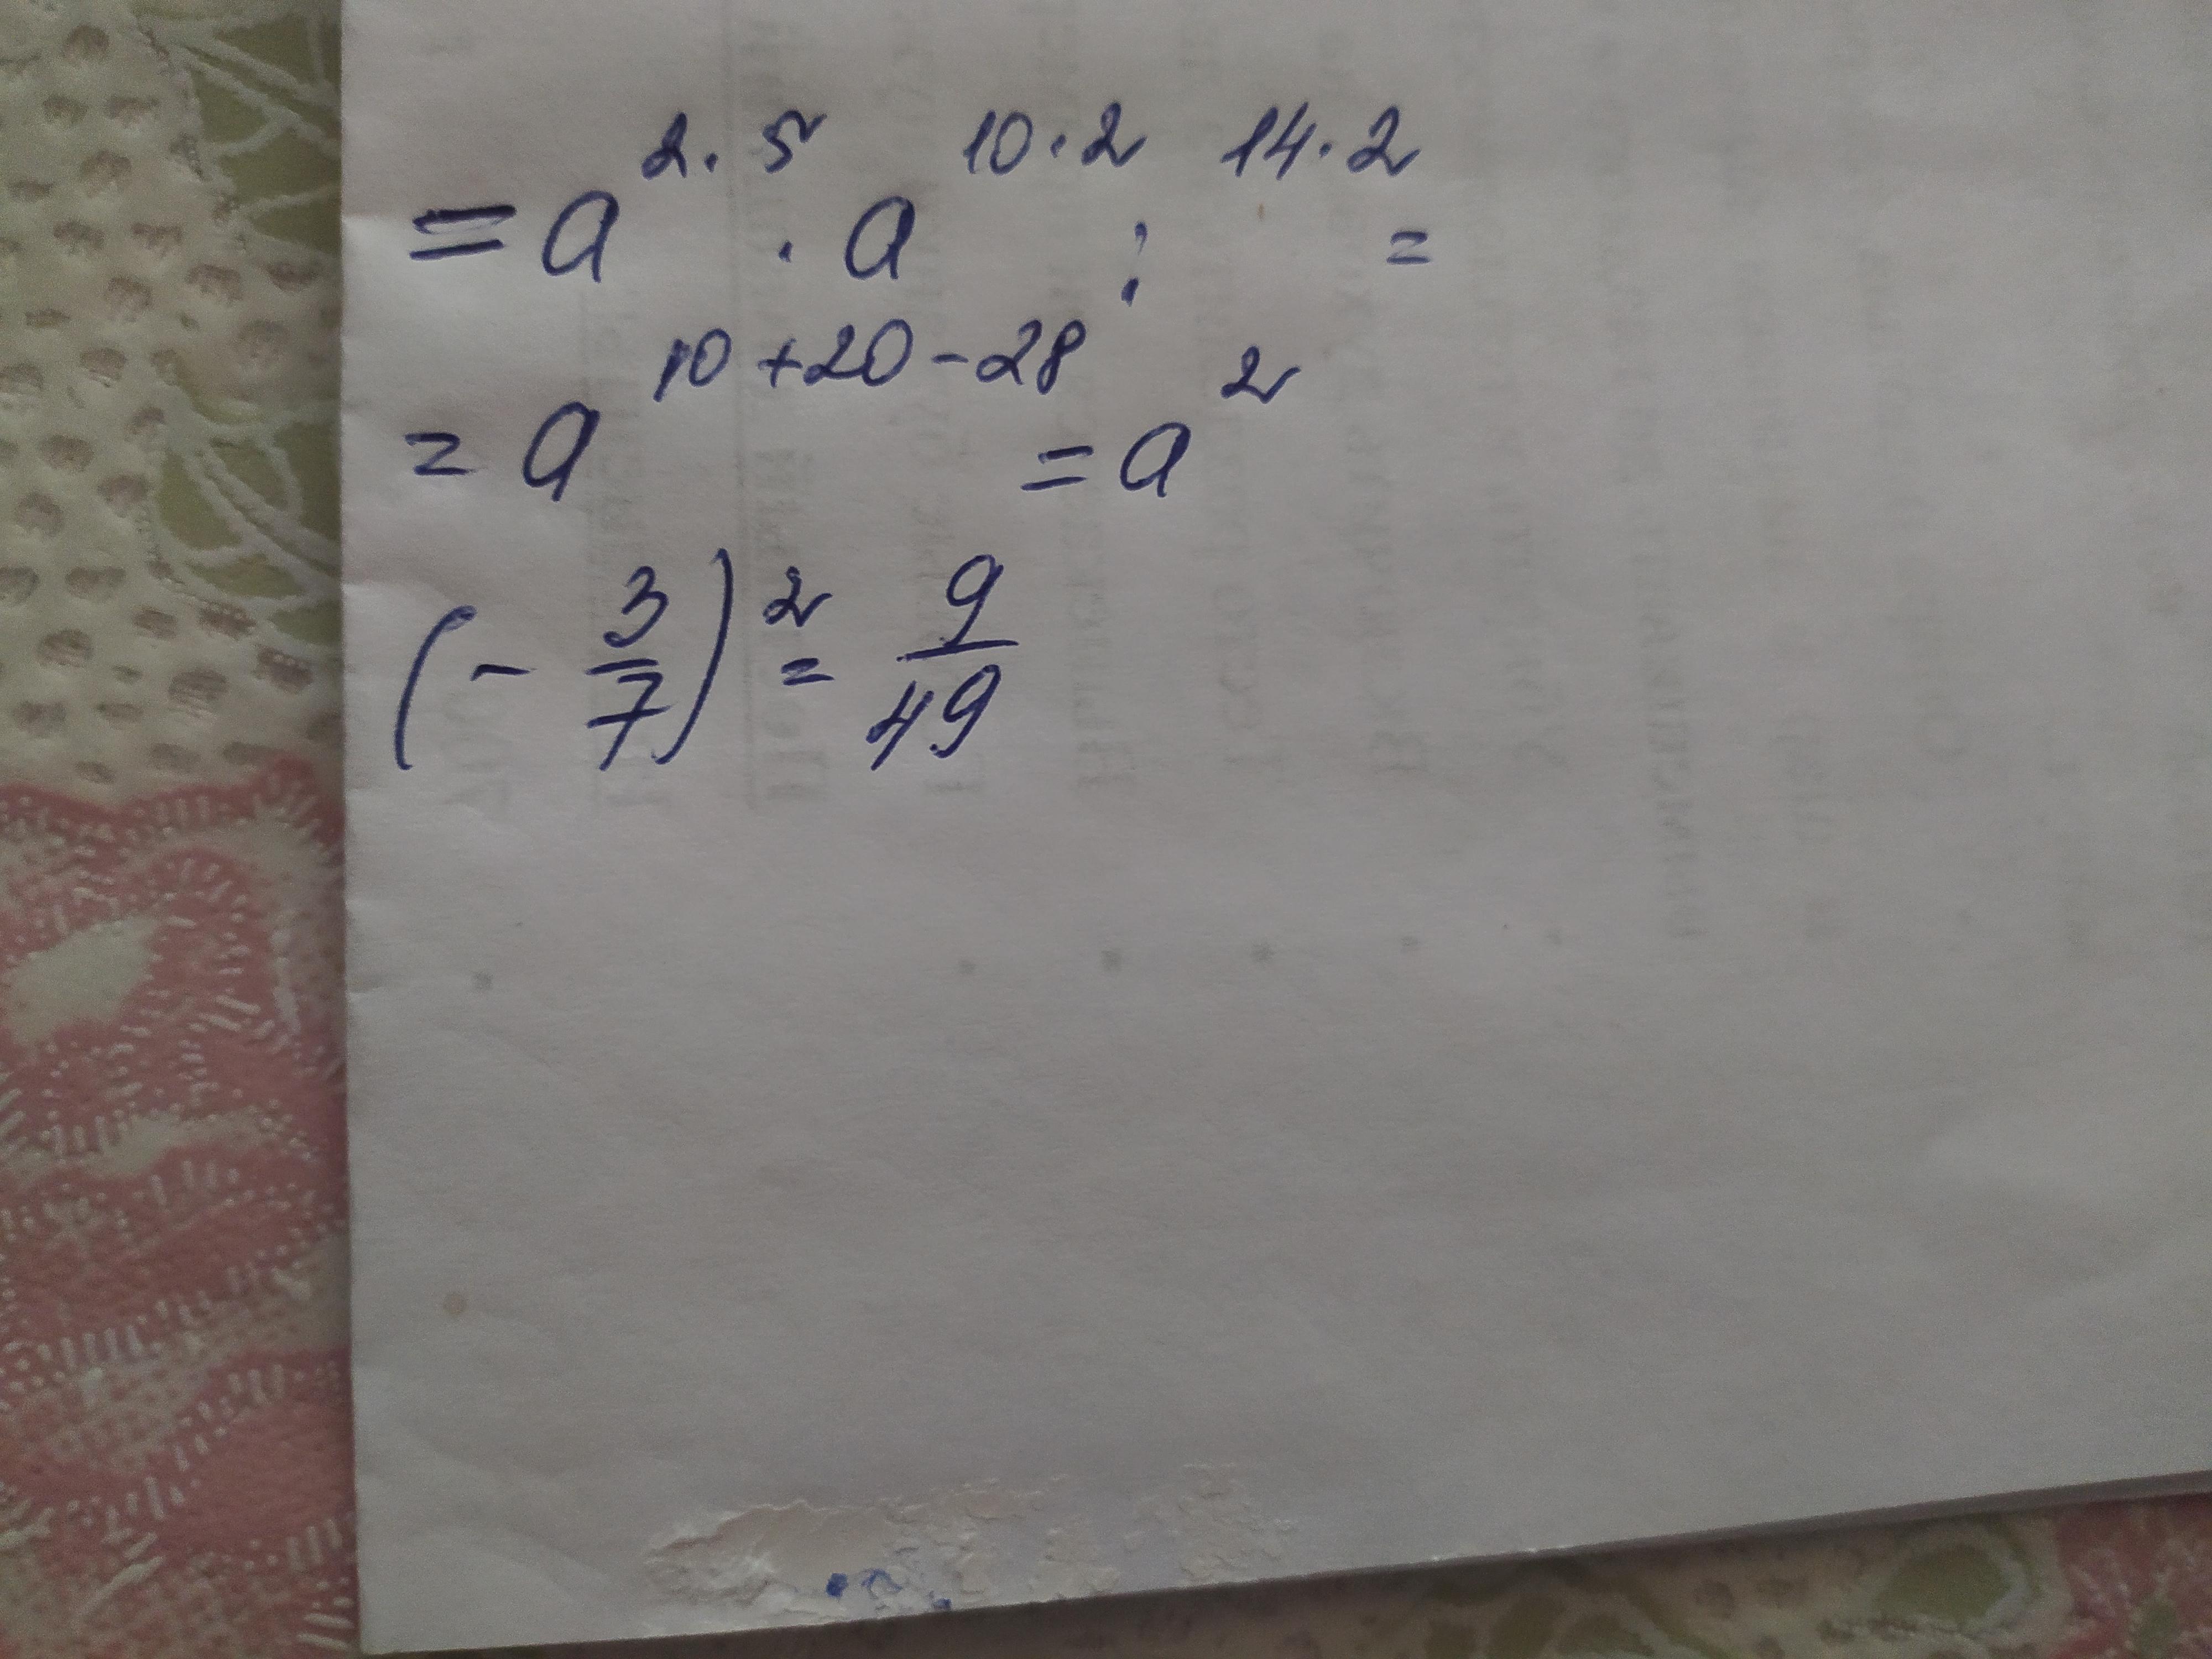 = a^{2·5} · a^{10·2} : ^{14·2} =
= a^{10+20-28} = a^2
(- 3/7)^2 = 9/49